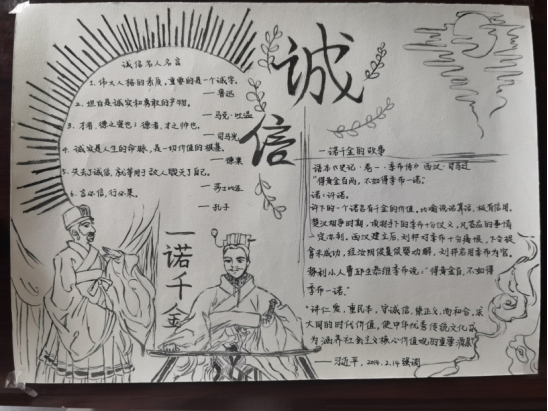 诚信
诚信名人名言
1. 伟大人格的素质，重要的是一个诚字。
——鲁迅
2. 坦白是诚实和勇敢的产物。
——马克·吐温
3. 才者，德之资也；德者，才之帅也。
——司马光
4. 诚实是人生的命脉，是一切价值的根基。
——德莱
5. 失去了诚信，就等同于敌人毁灭了自己。
——莎士比亚
6. 言必信，行必果。
——孔子
一诺千金
一诺千金的故事
语本《史记·卷一·季布传》西汉·司马迁
“得黄金百两，不如得季布一诺。”
诺：许诺。
许下的一个诺言有千金的价值，比喻说话算话，极有信用。
楚汉相争时期，项羽手下的季布
一定办到。西汉建立后，刘邦对季布十分痛恨，
刘邦召用季布为官，
“得黄金百，不如得
季布一诺。”
“讲仁爱，重民本，守诚信，崇正义，尚和合，求
大同的时代价值，使中华优秀传统文化成
为涵养社会主义核心价值观的重要源泉”
——习近平，2014.2.24强调